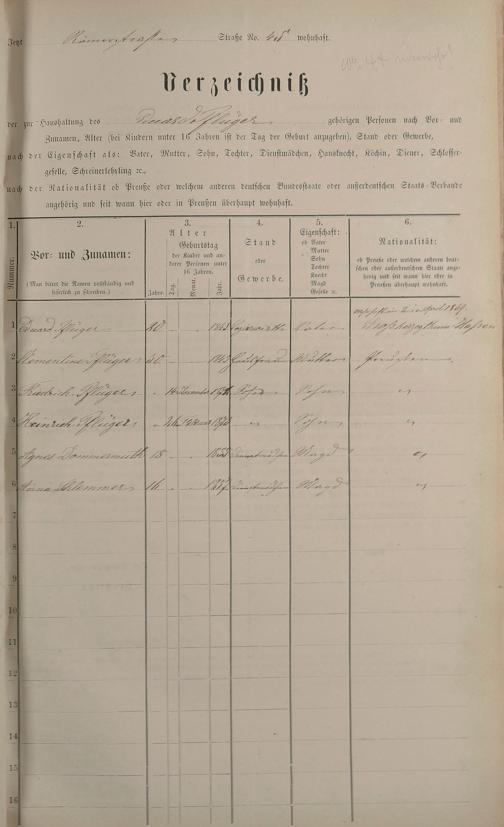 Jetzt Römerstraße Straße No. wohnhaft.
Verzeichniß
der zur Haushaltung des Eduard Pflüger gehörigen Personen nach Vor- und
Zunamen, Alter (bei Kindern unter 16 Jahren ist der Tag der Geburt anzugeben), Stand oder Gewerbe,
nach der Eigenschaft als: Vater, Mutter, Sohn, Tochter, Dienstmädchen, Hausknecht, Köchin, Diener, Schlosser-
geselle, Schreinerlehrling ꝛc.,
nach der Nationalität ob Preuße oder welchem anderen deutschen Bundesstaate oder außerdeutschen Staats-Verbande
angehörig und seit wann hier oder in Preußen überhaupt wohnhaft.
1. 2. 3. 4. 5. 6.
Nummer.
Vor- und Zunamen:
(Man bittet die Namen vollständig und
leserlich zu schreiben.)
Alter
Geburtstag
der Kinder und an-
derer Personen unter
16 Jahren.
Jahre. Tag. Monat. Jahr.
Stand
oder
Gewerbe.
Eigenschaft:
ob Vater
Mutter
Sohn
Tochter
Knecht
Magd
Geselle ꝛc.
Nationalität:
ob Preuße oder welchem anderen deut-
schen oder außerdeutschen Staate ange-
hörig und seit wann hier oder in
Preußen überhaupt wohnhaft.
1 Eduard Pflüger Vater Großherzogthum Hessen
2 Clementine Pflüger Mutter Preußen
3 Friedrich Pflüger November Sohn "
4 Heinrich Pflüger Sohn "
5 Agnes Dommermuth 18 Magd "
6 Anna Klemmer 16 Magd "
7
8
9
10
11
12
13
14
15
16